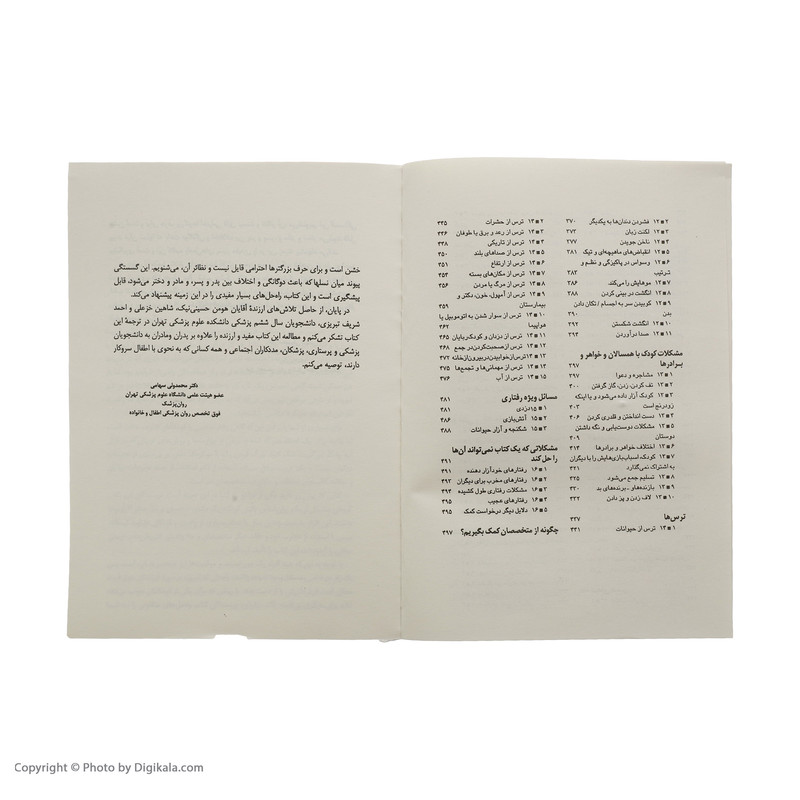 ۲ ■ ۱۲ فشردن دندان‌ها به یکدیگر ۳۷۰
۳ ■ ۱۲ لکنت زبان ۳۷۳
۴ ■ ۱۲ ناخن جویدن ۳۷۷
۵ ■ ۱۲ انقباض‌های ماهیچه‌ای و تیک ۳۸۱
۶ ■ ۱۲ وسواس در پاکیزگی و نظم و
ترتیب ۳۸۳
۷ ■ ۱۲ موهایش را می‌کند ۳۸۶
۸ ■ ۱۲ انگشت در بینی کردن ۳۸۸
۹ ■ ۱۲ کوبیدن سر به اجسام / تکان دادن
بدن ۳۹۰
۱۰ ■ ۱۲ انگشت شکستن ۳۹۲
۱۱ ■ ۱۲ صدا درآوردن ۳۹۴
مشکلات کودک با همسالان و خواهر و
برادرها ۳۹۷
۱ ■ ۱۳ مشاجره و دعوا ۳۹۷
۲ ■ ۱۳ تف کردن، زدن، گاز گرفتن ۴۰۰
۳ ■ ۱۳ کودک آزار داده می‌شود و یا اینکه
زودرنج است ۴۰۳
۴ ■ ۱۳ دست انداختن و قلدری کردن ۴۰۶
۵ ■ ۱۳ مشکلات دوست‌یابی و نگه داشتن
دوستان ۴۰۹
۶ ■ ۱۳ اختلاف خواهر و برادرها ۴۱۴
۷ ■ ۱۳ کودک، اسباب‌بازی‌هایش را با دیگران
به اشتراک نمی‌گذارد ۴۲۱
۸ ■ ۱۳ تسلیم جمع می‌شود ۴۲۵
۹ ■ ۱۳ بازنده‌ها و ـ برنده‌های بد ۴۳۰
۱۰ ■ ۱۳ لاف زدن و پز دادن ۴۳۲
ترس‌ها ۴۳۷
۱ ■ ۱۴ ترس از حیوانات ۴۴۱
۲ ■ ۱۴ ترس از حشرات ۴۴۵
۳ ■ ۱۴ ترس از رعد و برق یا طوفان ۴۴۶
۴ ■ ۱۴ ترس از تاریکی ۴۴۸
۵ ■ ۱۴ ترس از صداهای بلند ۴۵۰
۶ ■ ۱۴ ترس از ارتفاع ۴۵۱
۷ ■ ۱۴ ترس از مکان‌های بسته ۴۵۴
۸ ■ ۱۴ ترس از مرگ یا مردن ۴۵۶
۹ ■ ۱۴ ترس از آمپول، خون، دکتر و
بیمارستان ۴۵۹
۱۰ ■ ۱۴ ترس از سوار شدن به اتوموبیل یا
هواپیما ۴۶۲
۱۱ ■ ۱۴ ترس از دزدان و کودک‌ربایان ۴۶۵
۱۲ ■ ۱۴ ترس از صحبت‌کردن در جمع ۴۶۸
۱۳ ■ ۱۴ ترس از خوابیدن در بیرون از خانه ۴۷۲
۱۴ ■ ۱۴ ترس از مهمانی‌ها و تجمع‌ها ۴۷۵
۱۵ ■ ۱۴ ترس از آب ۴۷۶
مسائل ویژه رفتاری ۴۸۱
۱ ■ ۱۵ دزدی ۴۸۱
۲ ■ ۱۵ آتش‌بازی ۴۸۶
۳ ■ ۱۵ شکنجه و آزار حیوانات ۴۸۸
مشکلاتی که یک کتاب نمی‌تواند آن‌ها
را حل کند ۴۹۱
۱ ■ ۱۶ رفتارهای خودآزار دهنده ۴۹۱
۲ ■ ۱۶ رفتارهای مخرب برای دیگران ۴۹۲
۳ ■ ۱۶ مشکلات رفتاری طول کشیده ۴۹۴
۴ ■ ۱۶ رفتارهای عجیب ۴۹۵
۵ ■ ۱۶ دلایل دیگر درخواست کمک ۴۹۵
چگونه از متخصصان کمک بگیریم؟ ۴۹۷
خشن است و برای حرف بزرگترها احترامی قایل نیست و نظائر آن، می‌شنویم. این گسستگی
پیوند میان نسلها که باعث دوگانگی و اختلاف بین پدر و پسر، و مادر و دختر می‌شود، قابل
پیشگیری است و این کتاب، راه‌حل‌های بسیار مفیدی را در این زمینه پیشنهاد می‌کند.
در پایان، از حاصل تلاش‌های ارزندهٔ آقایان هومن حسینی‌نیک، شاهین خزعلی و احمد
شریف تبریزی، دانشجویان سال ششم پزشکی دانشکده علوم پزشکی تهران در ترجمهٔ این
کتاب تشکر می‌کنم و مطالعه این کتاب مفید و ارزنده را علاوه بر پدران ومادران به دانشجویان
پزشکی و پرستاری، پزشکان، مددکاران اجتماعی و همه کسانی که به نحوی با اطفال سروکار
دارند، توصیه می‌کنم.
دکتر محمدولی سهامی
عضو هیئت علمی دانشگاه علوم پزشکی تهران
روان‌پزشک
فوق تخصص روان پزشکی اطفال و خانواده
Copyright © Photo by Digikala.com